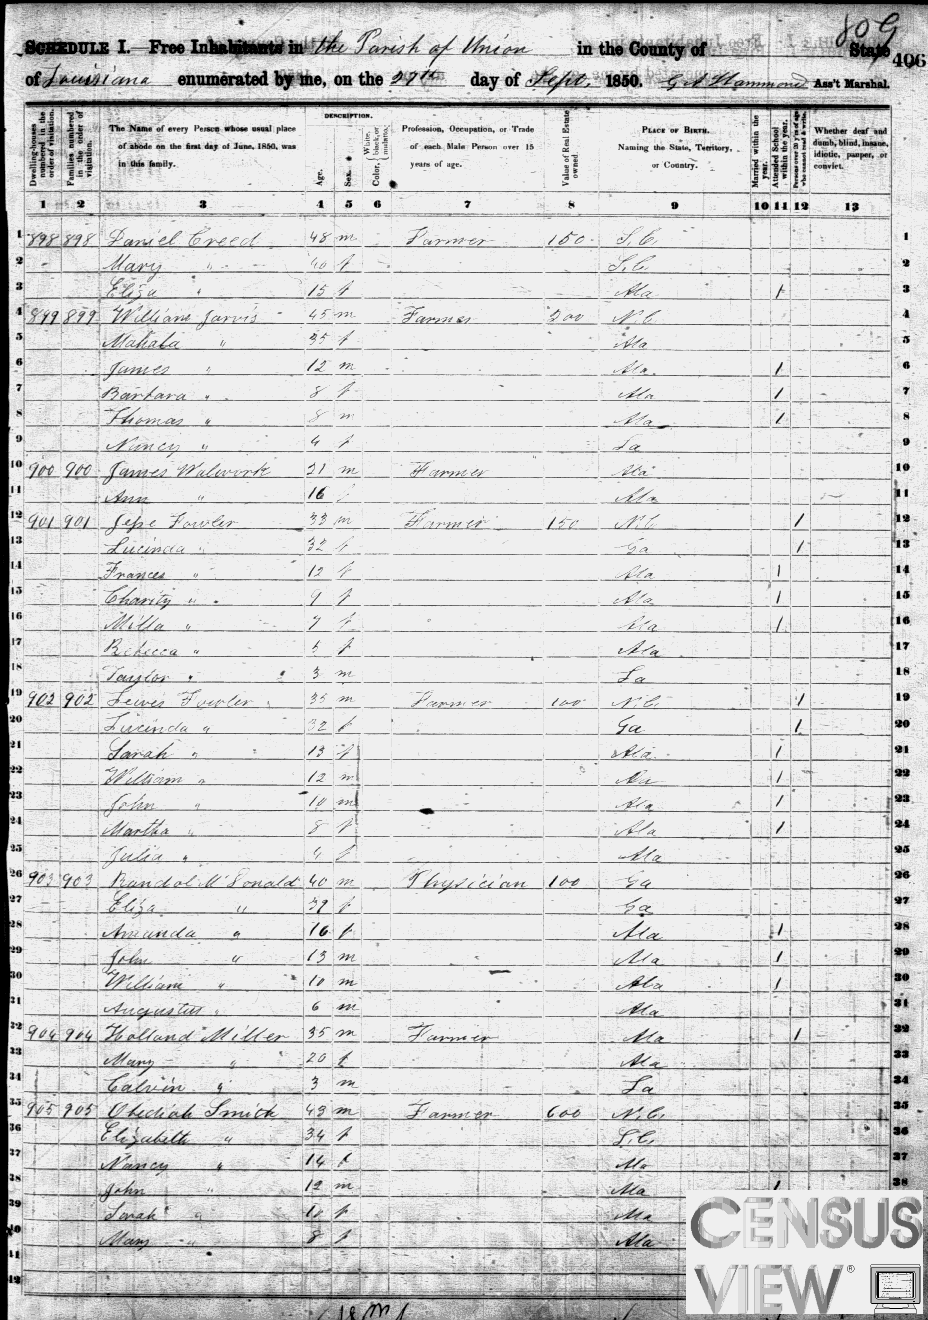 809
SCHEDULE I.—Free Inhabitants in the Parish of Union in the County of State 406
of Louisiana enumerated by me, on the 27th day of Sept, 1850. Ass't Marshal.
Dwelling-houses numbered in the order of visitation.
Families numbered in the order of visitation.
The Name of every Person whose usual place of abode on the first day of June, 1850, was in this family.
DESCRIPTION.
Age.
Sex.
Color, White, black, or mulatto.
Profession, Occupation, or Trade of each Male Person over 15 years of age.
Value of Real Estate owned.
PLACE OF BIRTH. Naming the State, Territory, or Country.
Married within the year.
Attended School within the year.
Persons over 20 y'rs of age who cannot read & write.
Whether deaf and dumb, blind, insane, idiotic, pauper, or convict.
1 2 3 4 5 6 7 8 9 10 11 12 13
1 898 898 Daniel Creed 48 m Farmer 150 S.C. 1
2 Mary " 40 f S.C. 2
3 Eliza " 15 f Ala 1 3
4 899 899 William Jarvis 45 m Farmer 200 N.C. 4
5 Mahala " 35 f Ala 5
6 James " 12 m Ala 1 6
7 Barbara " 8 f Ala 1 7
8 Thomas " 8 m Ala 1 8
9 Nancy " 4 f La 9
10 900 900 James Walwork 21 m Farmer Ala 10
11 Ann " 16 f Ala 11
12 901 901 Jesse Fowler 33 m Farmer 150 N.C. 1 12
13 Lucinda " 32 f Ga 1 13
14 Frances " 12 f Ala 1 14
15 Charity " 9 f Ala 1 15
16 Milla " 7 f Ala 1 16
17 Rebecca " 5 f Ala 17
18 Taylor " 3 m La 18
19 902 902 Lewis Fowler 35 m Farmer 100 N.C. 1 19
20 Lucinda " 32 f Ga 1 20
21 Sarah " 13 f Ala 1 21
22 William " 12 m Ala 1 22
23 John " 10 m Ala 1 23
24 Martha " 8 f Ala 1 24
25 Julia " 4 f Ala 25
26 903 903 Randol McDonald 40 m Physician 100 Ga 26
27 Eliza " 39 f Ga 27
28 Amanda " 16 f Ala 1 28
29 John " 13 m Ala 1 29
30 William " 10 m Ala 1 30
31 Augustus " 6 m Ala 31
32 904 904 Holland Miller 35 m Farmer Ala 1 32
33 Mary " 20 f Ala 33
34 Calvin " 3 m La 34
35 905 905 Obediah Smith 43 m Farmer 600 N.C. 35
36 Elizabeth " 34 f S.C. 36
37 Nancy " 14 f Ala 37
38 John " 12 m Ala 1 38
39 Sarah " 10 f Ala
40 Mary " 8 f Ala
41
42
18 m
CENSUS
VIEW®